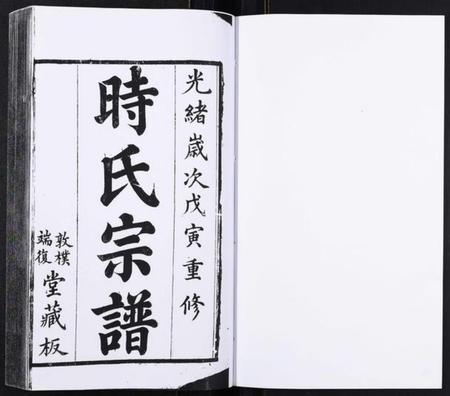 光緒歲次戊寅重修
時氏宗譜
敦樸
端復
堂藏板